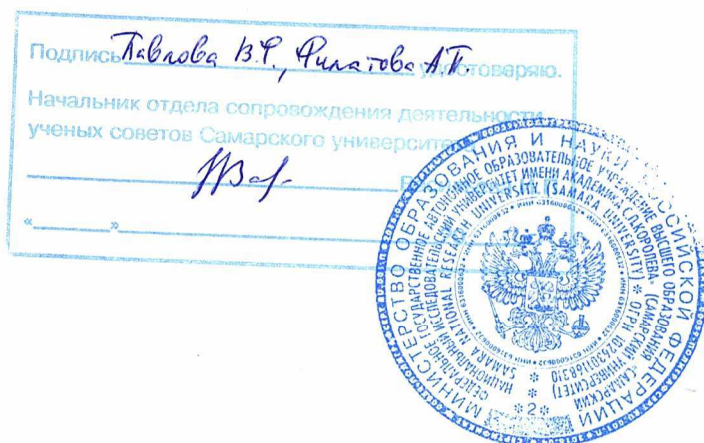 Подпись Павлова В.Ф., Филатова А.П. удостоверяю.
Начальник отдела сопровождения деятельности
ученых советов Самарского университета
« »
МИНИСТЕРСТВО ОБРАЗОВАНИЯ И НАУКИ РОССИЙСКОЙ ФЕДЕРАЦИИ
ФЕДЕРАЛЬНОЕ ГОСУДАРСТВЕННОЕ АВТОНОМНОЕ ОБРАЗОВАТЕЛЬНОЕ УЧРЕЖДЕНИЕ ВЫСШЕГО ОБРАЗОВАНИЯ «САМАРСКИЙ
НАЦИОНАЛЬНЫЙ ИССЛЕДОВАТЕЛЬСКИЙ УНИВЕРСИТЕТ ИМЕНИ АКАДЕМИКА С.П.КОРОЛЕВА» (САМАРСКИЙ УНИВЕРСИТЕТ)
SAMARA NATIONAL RESEARCH UNIVERSITY (SAMARA UNIVERSITY) * ОГРН 1026301168310 *
* ИНН 6316000632 * ИНН 6316000632 *
*2*